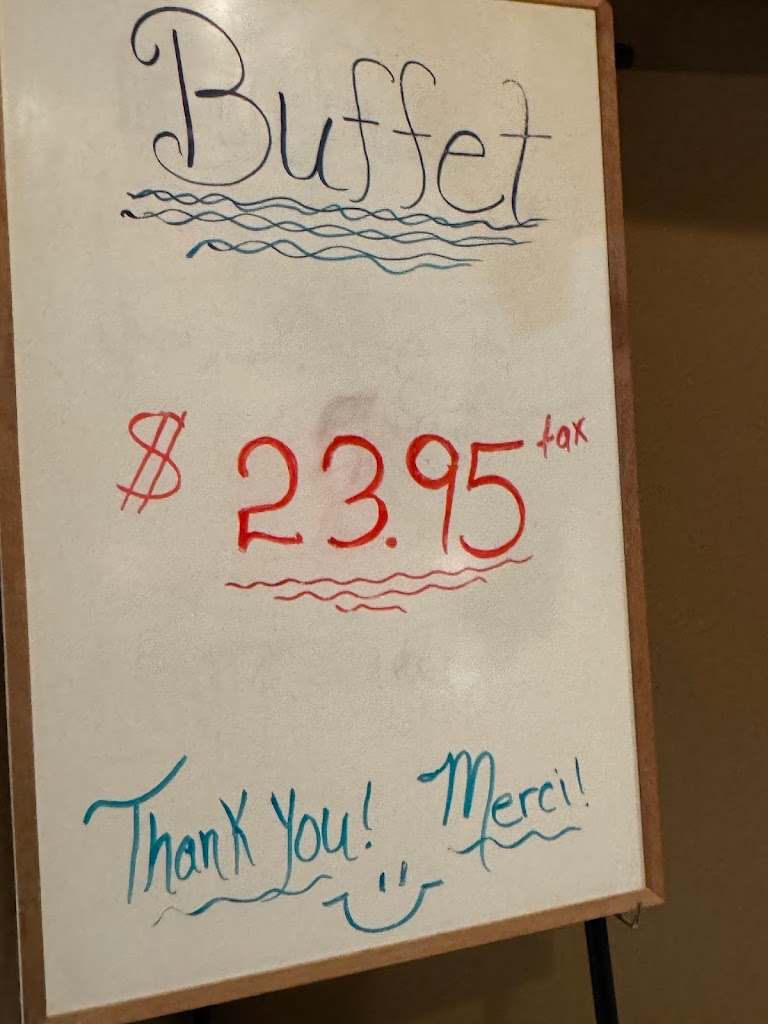 Buffet
$ 23.95 tax
Thank You! Merci!